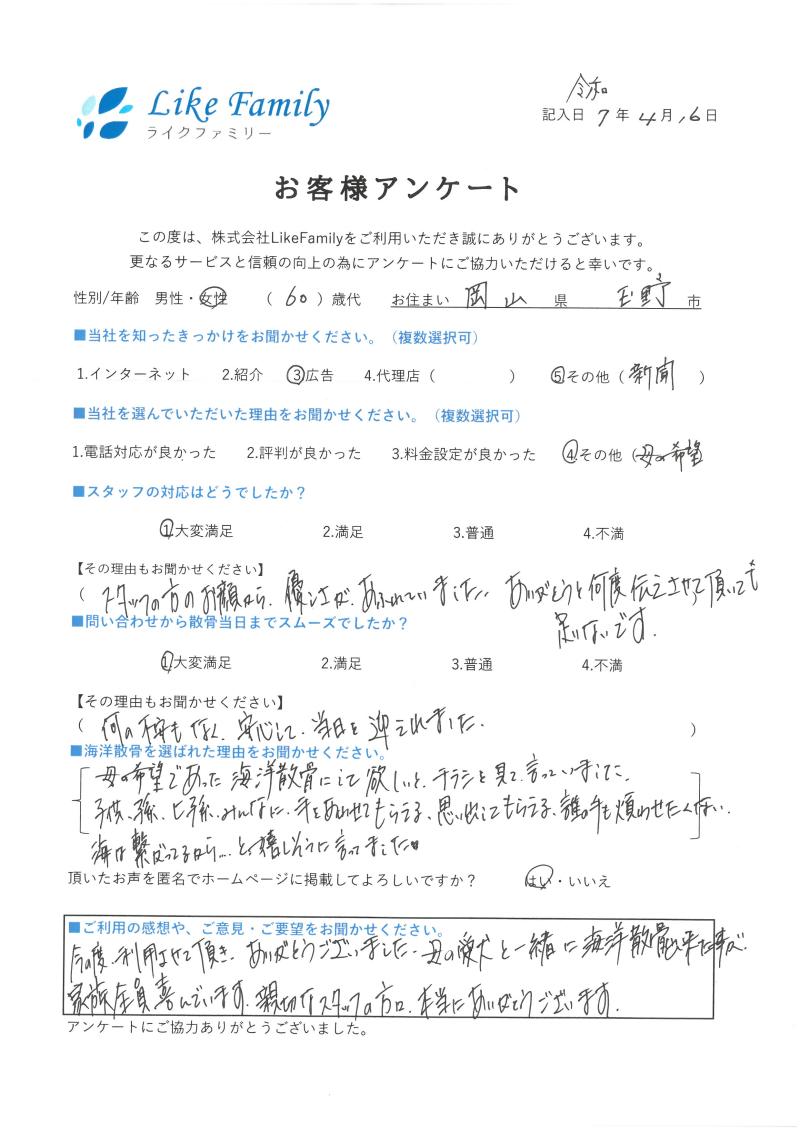 Like Family
ライクファミリー
令和
記入日 7年 4月 16日
お客様アンケート
この度は、株式会社LikeFamilyをご利用いただき誠にありがとうございます。
更なるサービスと信頼の向上の為にアンケートにご協力いただけると幸いです。
性別/年齢 男性・女性 ( 60 ) 歳代 お住まい 岡山 県 玉野 市
■当社を知ったきっかけをお聞かせください。(複数選択可)
1.インターネット 2.紹介 ③広告 4.代理店 ( ) ⑤その他 ( 新聞 )
■当社を選んでいただいた理由をお聞かせください。(複数選択可)
1.電話対応が良かった 2.評判が良かった 3.料金設定が良かった ④その他 (母の希望
■スタッフの対応はどうでしたか?
①大変満足 2.満足 3.普通 4.不満
【その理由もお聞かせください】
( スタッフの方のお顔から、優しさが、あふれていました。ありがとうと何度伝えさせて頂いても
足りないです.
■問い合わせから散骨当日までスムーズでしたか?
①大変満足 2.満足 3.普通 4.不満
【その理由もお聞かせください】
( 何の不安もなく、安心して、当日を迎えれました. )
■海洋散骨を選ばれた理由をお聞かせください。
母の希望であった海洋散骨にして欲しいと、チラシを見て、言っていました.
子供、孫、ヒ孫、みんなに、手をあわせてもらえる、思い出してもらえる、誰の手も煩わせたくない.
海は繋がってるから...と、嬉しそうに言ってました
頂いたお声を匿名でホームページに掲載してよろしいですか? はい・いいえ
■ご利用の感想や、ご意見・ご要望をお聞かせください。
今の度、利用させて頂き、ありがとうございました. 母の愛犬と一緒に海洋散骨出来た事が、
家族全員喜んでいます. 親切なスタッフの方に、本当にありがとうございます.
アンケートにご協力ありがとうございました。